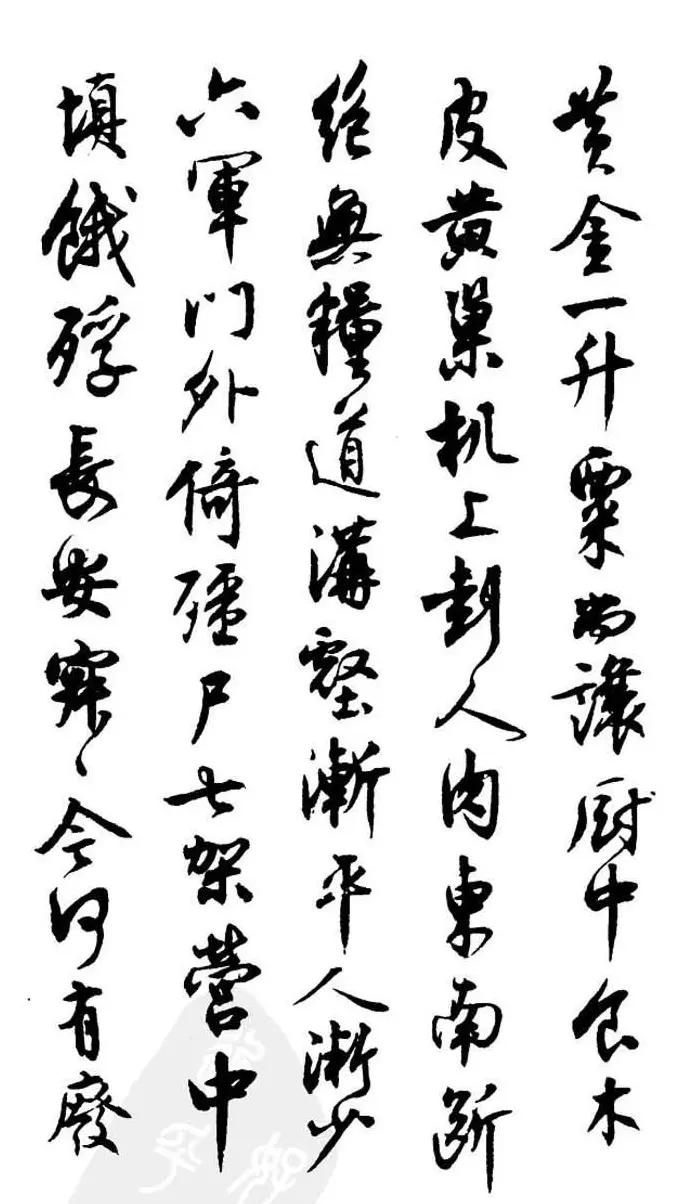 黃金一升粟尚讓厨中食木
皮黃巢机上刲人肉東南斷
絕無糧道溝壑漸平人漸少
六軍門外倚殭尸七架營中
填餓殍長安寂〻今何有廢